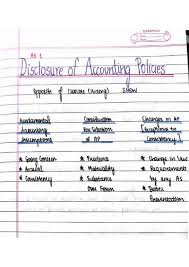 AS 1
Disclosure of Accounting Policies
Opposite of Show
Fundamental Consideration Changes in AP
Accounting For Selection [Exceptions to
Assumptions of AP Consistency]
* Going Concern * Prudence * Change in Law
* Accrual * Materiality * Requirements
* Consistency * Substance by any AS
Over Form * Better
Presentation